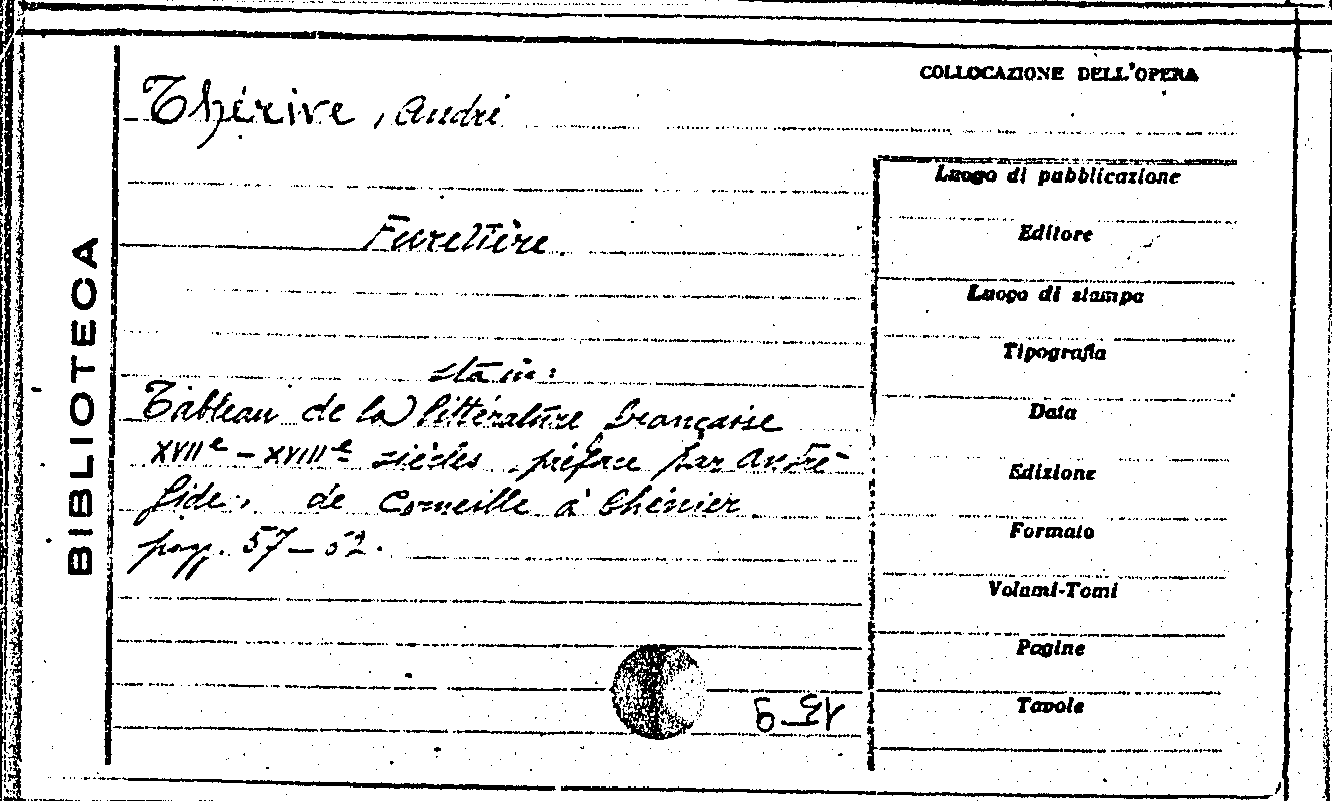 COLLOCAZIONE DELL'OPERA
Thérive, André
Furetière
sta in:
Tableau de la littérature française
XVIIe - XVIIIe siècles, préface par André
Gide, de Corneille à Chénier
pagg. 57-52.
BIBLIOTECA
Luogo di pubblicazione
Editore
Luogo di stampa
Tipografia
Data
Edizione
Formato
Volumi-Tomi
Pagine
Tavole